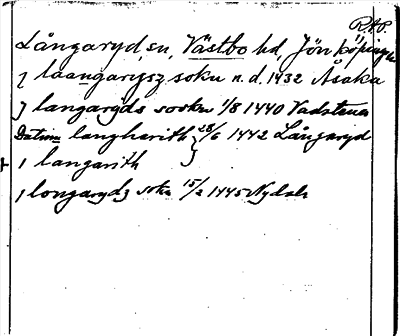 R.A.P.
Långaryd, sn, Västbo hd, Jönköpings
J laangarysz sokn n.d. 1432 Åsaka
J langaryds soskn 1/8 1440 Vadstena
Datum langharith } 28/6 1442 Långaryd
, i langarith
, longarydz sokn 15/2 1445 Nydala